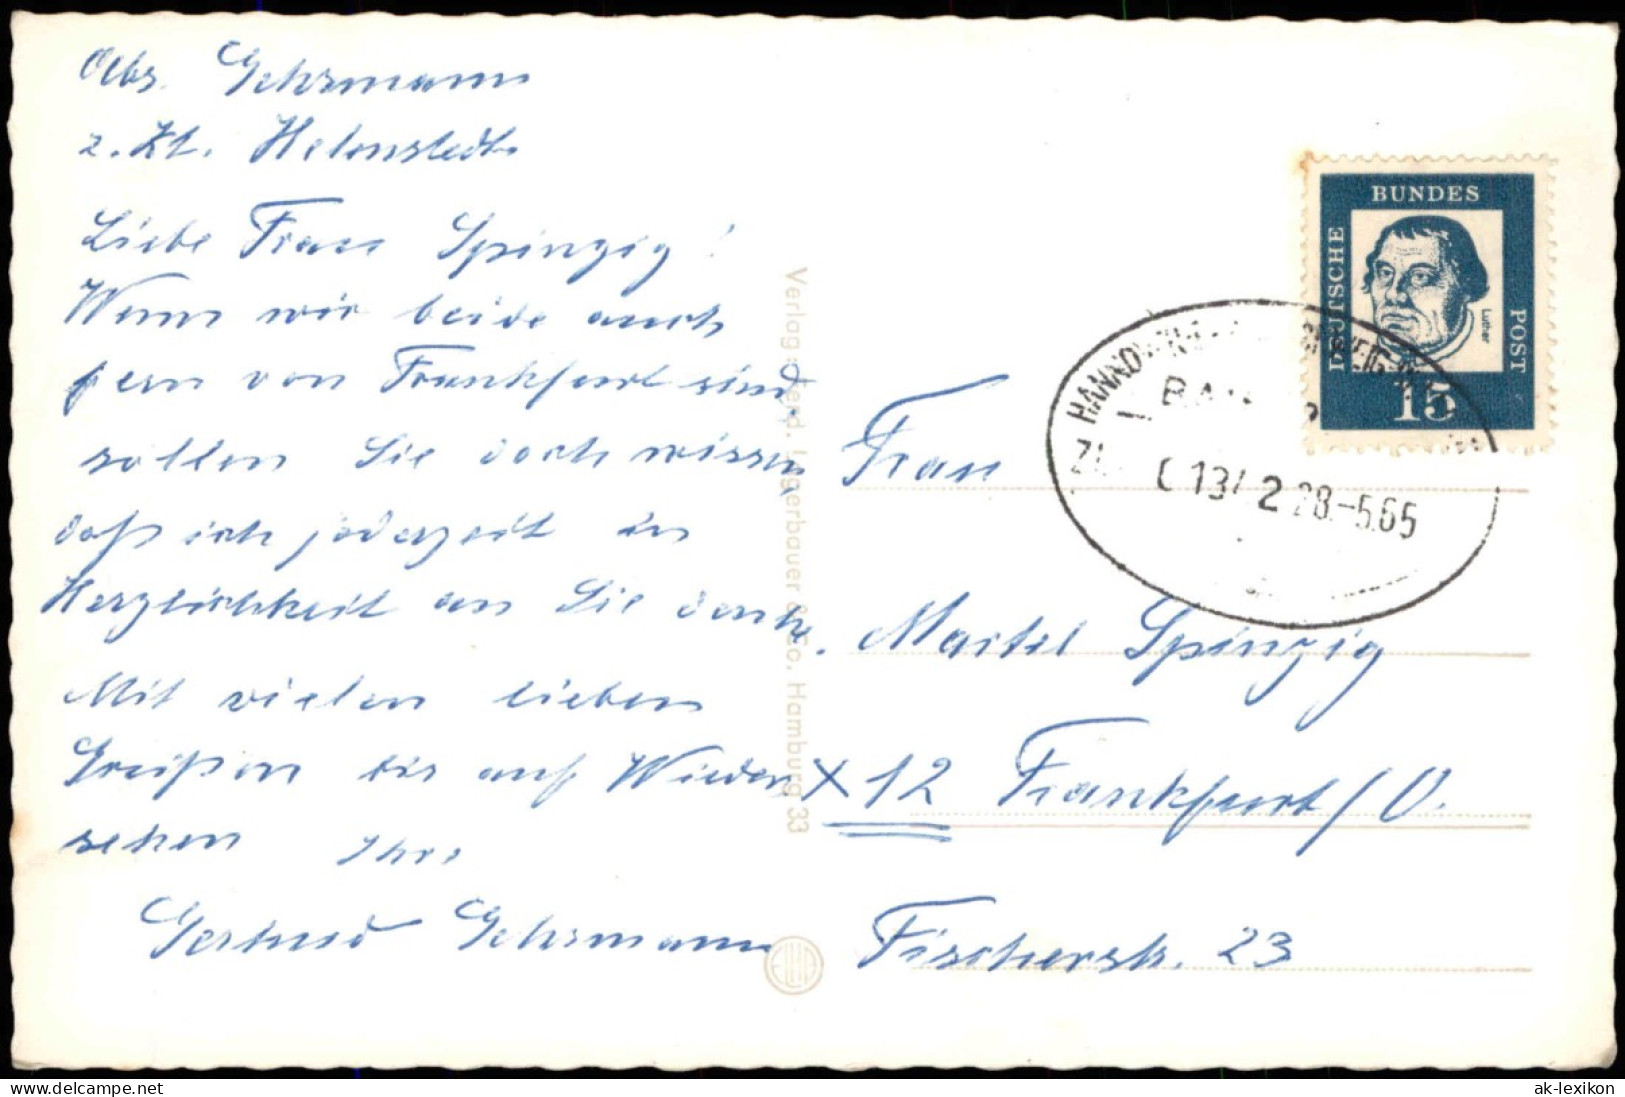 Abs. Gehrmann
z. Zt. Helmstedt
Liebe Frau Spinzig!
Wenn wir beide auch
fern von Frankfurt sind,
sollen Sie doch wissen,
daß ich jederzeit in
Herzlichkeit an Sie denke.
Mit vielen lieben
Grüßen bis auf Wieder
sehen Ihre
Gertrud Gehrmann
Verlag Ferd. Lagerbauer & Co. Hamburg 33
BUNDES
DEUTSCHE
POST
Luther
15
HANNOVER
BA
28.-5.65
Frau
Martel Spinzig
X 12 Frankfurt/O.
Fischerstr. 23
hansmichael-tiskens
ak-lexikon